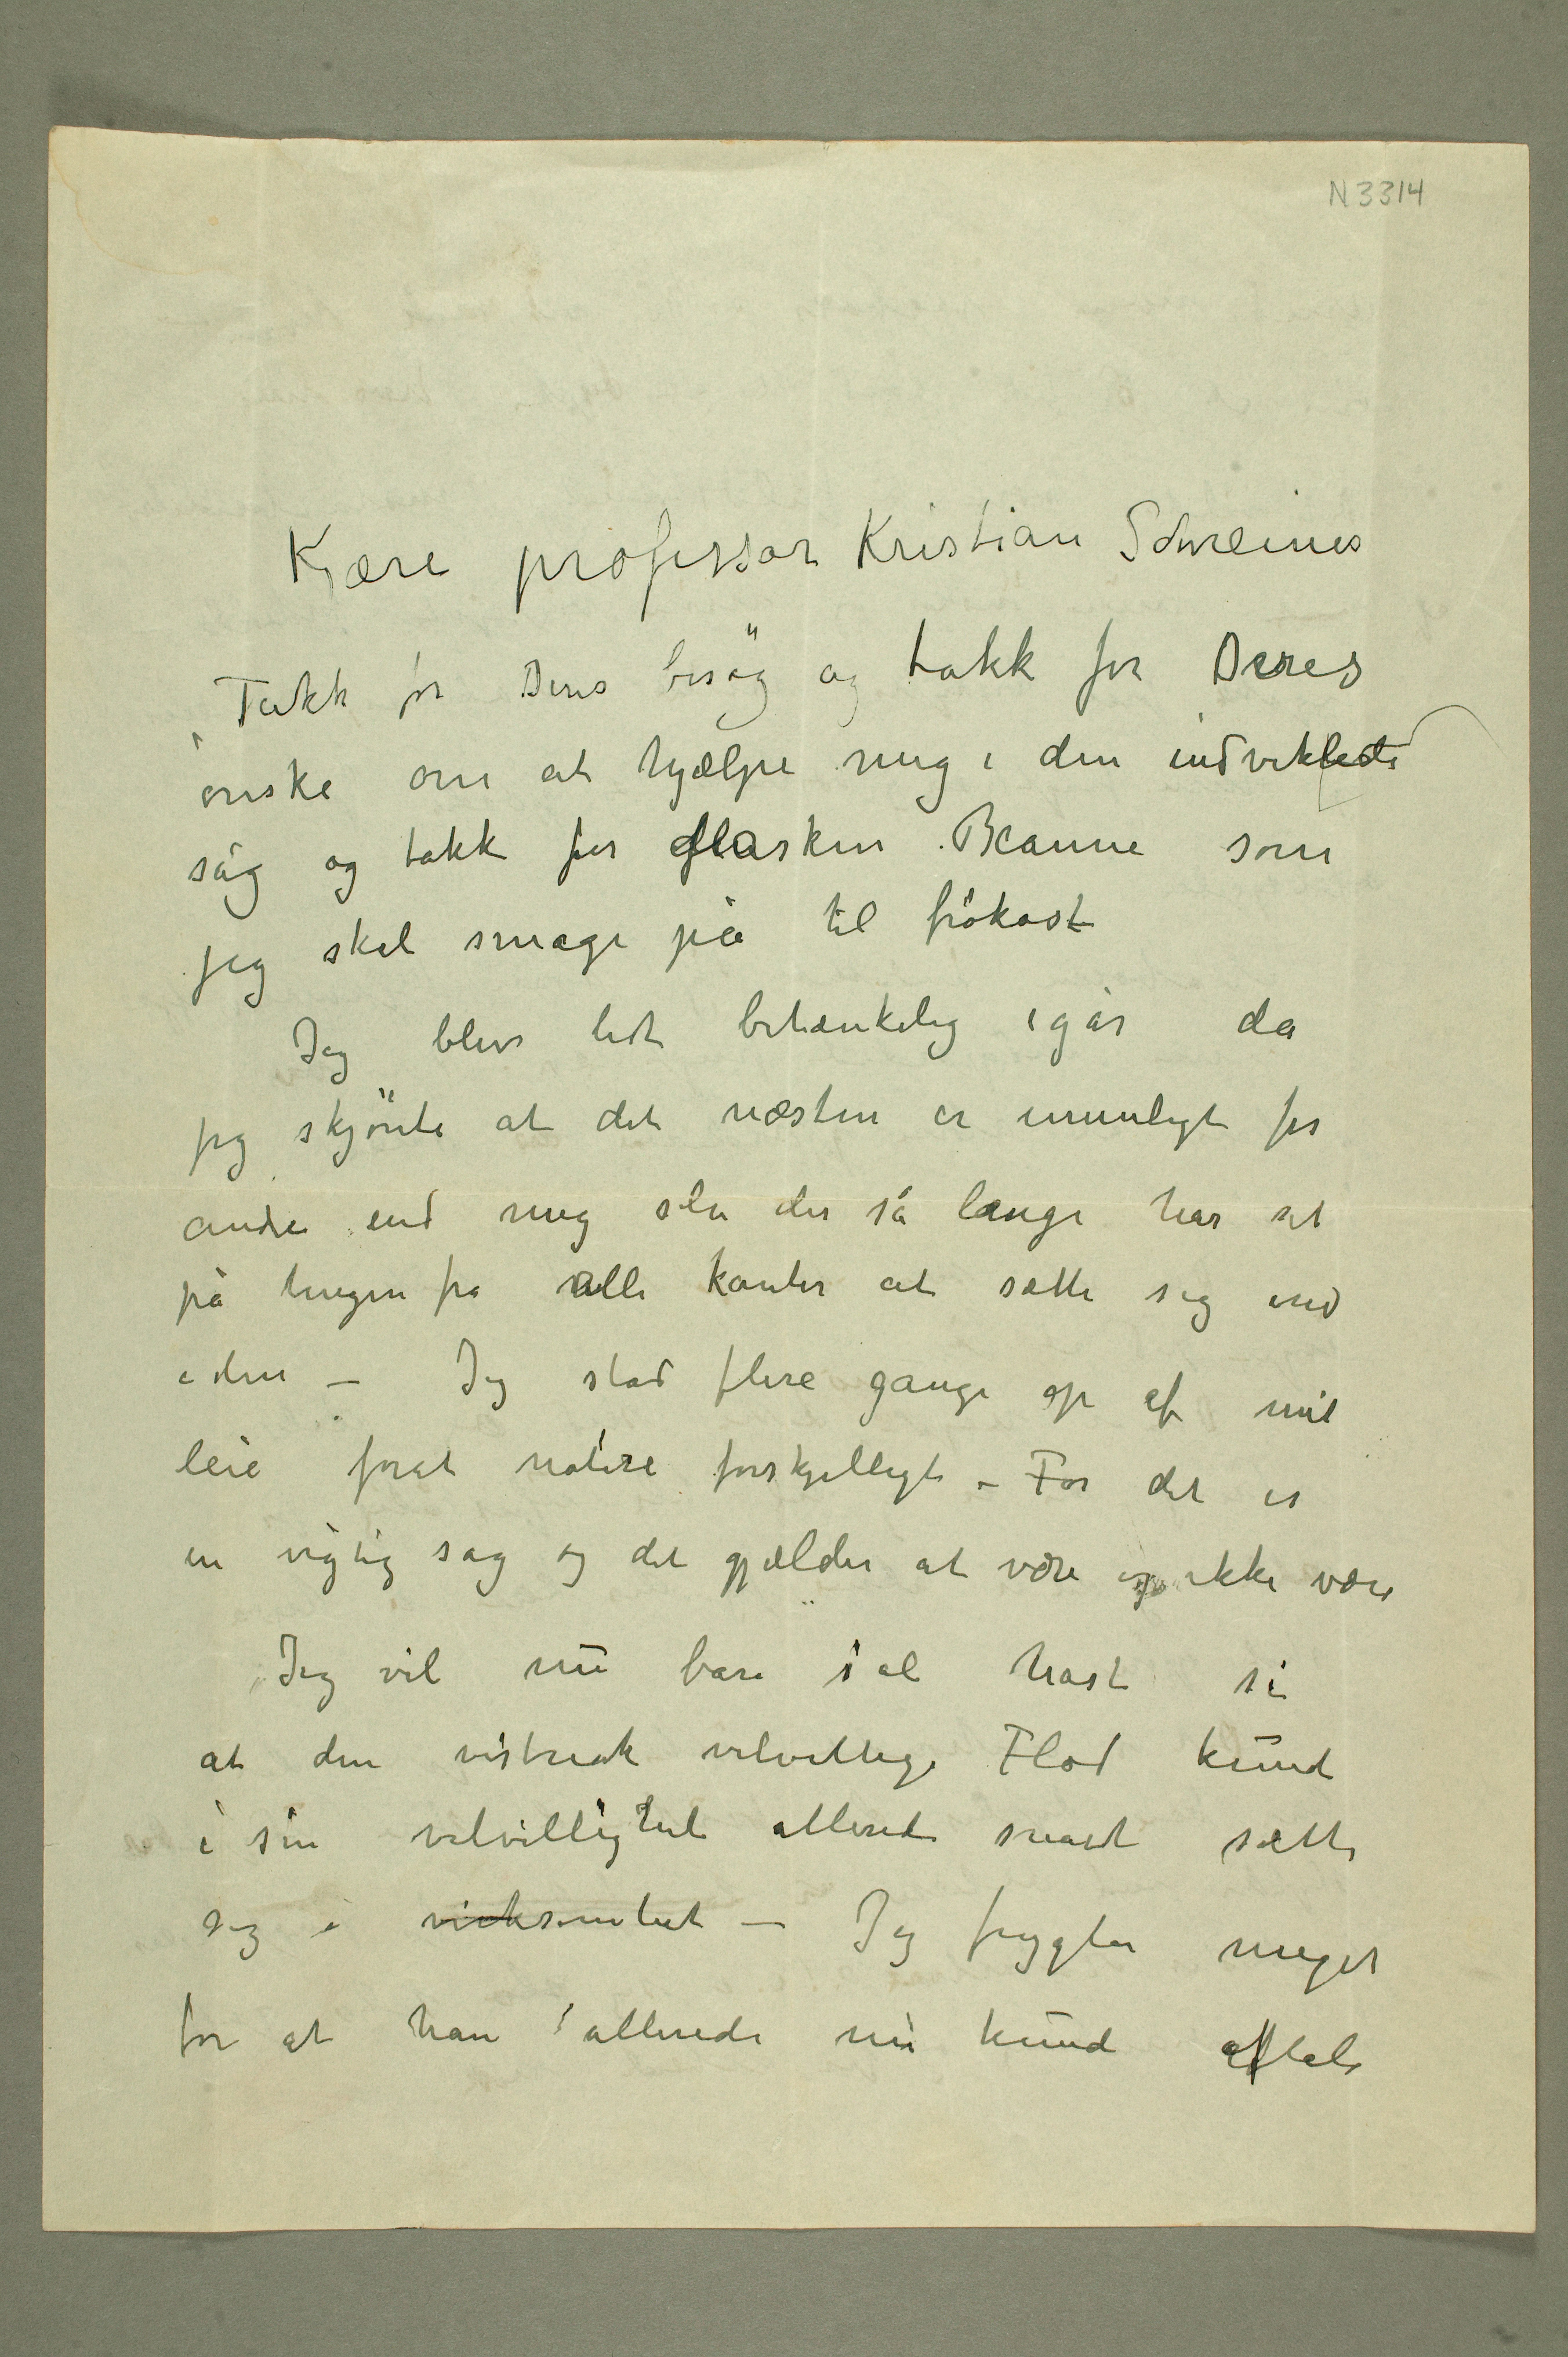 N 3314
Kjære professor Kristian Schreiner
Takk for Deres besøg og takk for Deres
ønske om at hjælpe mig i den indviklede
sag og takk for flasken Beaune som
jeg skal smage på til frokost
Jeg blev lidt betænkelig igår da
jeg skjønte at det næsten er umuligt for
andre end mig selv der så længe har set
på tingen fra alle kanter at sætte sig ind
i den – Jeg stod flere gange op af mit
leie forat notere forskjelligt – For det er
en vigtig sag og det gjælder at være og ikke være
Jeg vil nu bare i al hast si
at den vistnok velvillige Flod kund
i sin velvillighet allerede snart sætte
sig i virksomhet – Jeg frygter meget
for at han allerede nu kund aftale